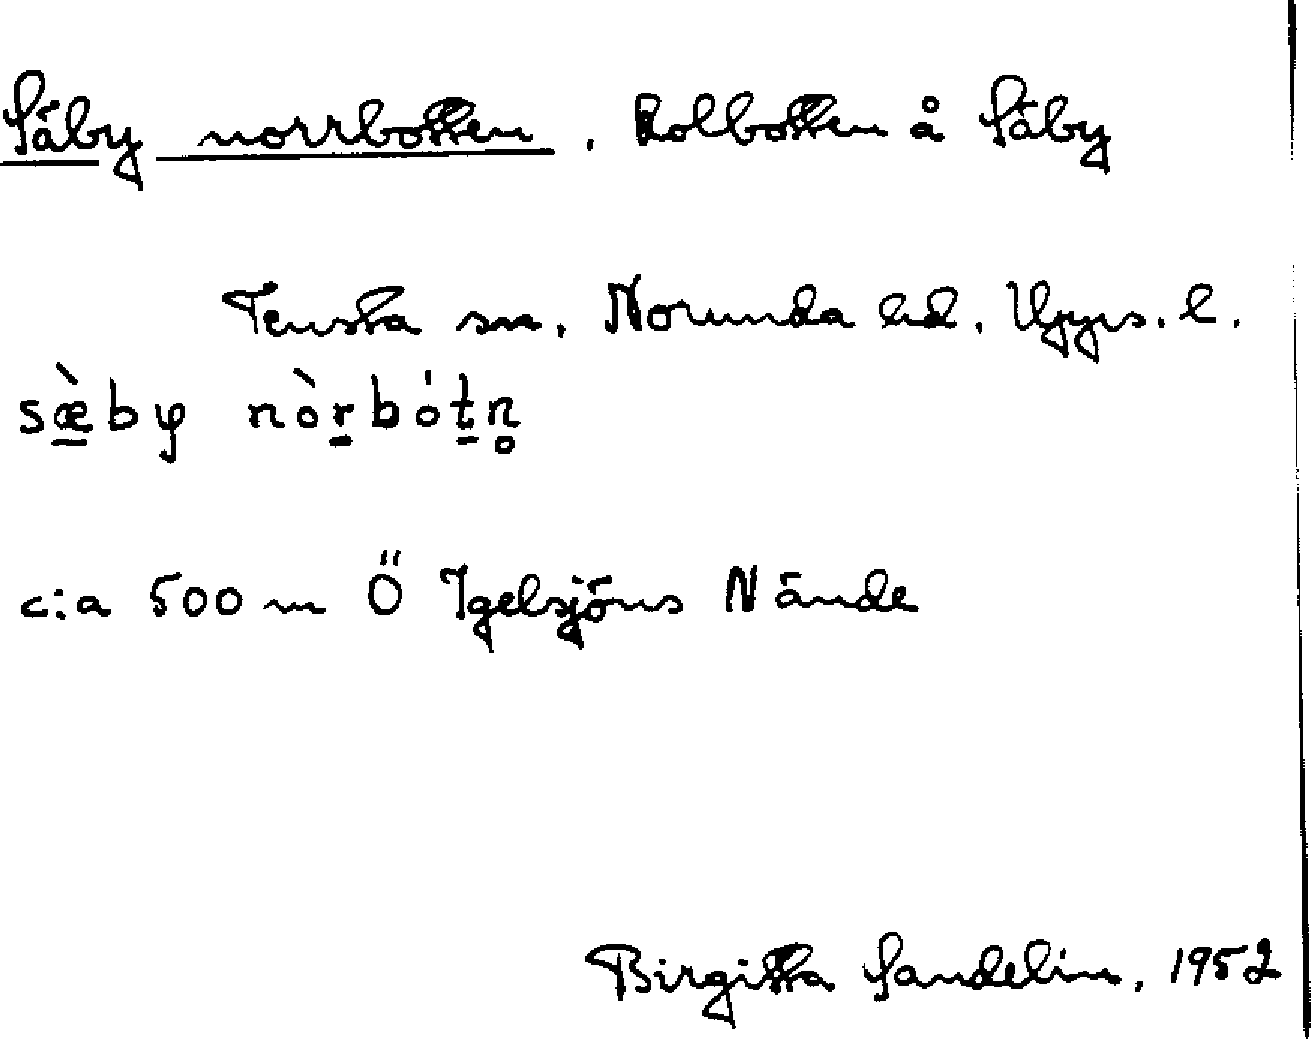 Säby norrbotten. Kolbotten å Säby
Tensta sn. Norunda hd. Upps. l.
sæ̀by nòrbótn̥
c:a 500 m Ö Igelsjöns N ände
Birgitta Sandelin. 1952